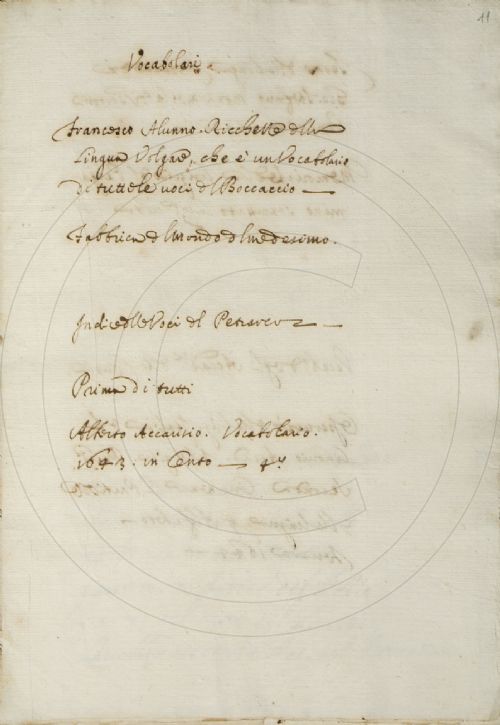 11
Vocabolarii
Francesco Alunno. Ricchezze della
Lingua Volgare, che è un Vocabolario
di tutte le voci del Boccaccio
Fabbrica del Mondo del medesimo.
Indice delle Voci del Petrarca
Prima di tutti
Alberto Accarisio. Vocabolario.
1643. in Cento — 4.º